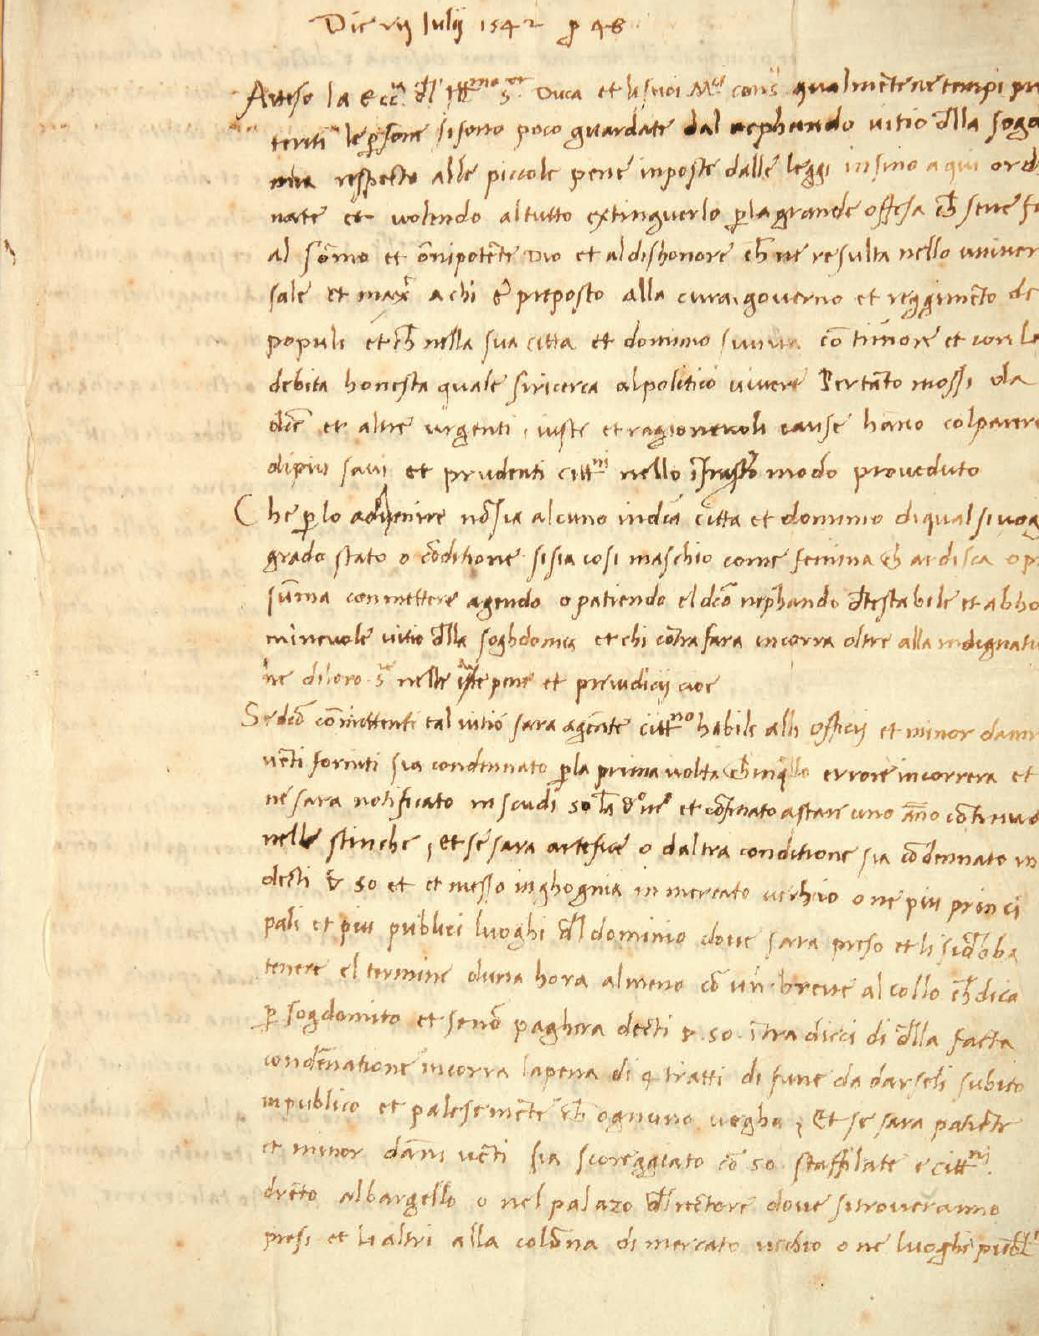 Die vii Julij 1542 p 48
Atteso la Ecc.a dll Ill.mo S.or Duca et li suoi M.ci cons.ri qualmente ne tempi pre
teriti le persone si sono poco guardate dal nephando vitio dlla sogdo
mia respecto alle piccole pene inposte dalle leggi insino a qui ordi
nate et volendo al tutto extinguerlo p la grande offesa ch sene fa
al sõmo et õnipotẽte Dio et al dishonore ch ne resulta nello univer
sale et max.e a chi è preposto alla cura, governo et reggimẽto de
populi et ch nella sua citta et dominio si viva cõ timore et con la
debita honesta quale si ricerca al politico vivere Pertãto mossi da
dce et altre urgenti, iuste et ragionevoli cause hãno col parere
di piu savi et prudenti citt.ni nello infrascto modo proveduto
Che p lo advenire nõ sia alcuno in dca citta et dominio di qual si vog
grado stato o cõditione si sia cosi maschio come femina ch ardisca o pre
summa conmettere agendo o patiendo el dco nephando dtestabile et abho
minevole vitio dlla soghdomia et chi contrafara incorra oltre alla indignatio
ne di loro S. nelle infte pene et preiudicij cioe
Se dco cõmettenti tal vitio sara agẽnte citt.no habile alli officij et minor danni
vẽti forniti sia condennato p la prima volta ch in qllo errore incorrera et
ne sara notificato in scudi 50 la d'oro et cõfinato a stare uno anno cõtinuo
nelle stinche, et se sara artefice o d'altra conditione sia cõdennato in
decti V 50 et et messo in ghognia in mercato vechio o ne piu princi
pali et piu publici luoghi dll dominio dove sara preso et li si dbba
tenere el termine duna hora almeno cõ un breve al collo ch dica
p sogdomito et se nõ paghera decti V. 50. ĩtra dieci di dlla facta
condẽnatione incorra la pena di 4 tratti di fune da darseli subito
in publico et palesemẽte ch ognuno vegha, Et se sara patiẽte
et minor dãni vẽti sia scoreggiato cõ 50 staffilate e citt.ni
drẽto al bargello o nel palazo dll rectore dove si troveranno
presi et li altri alla colõna di mercato vechio o ne luoghi publi